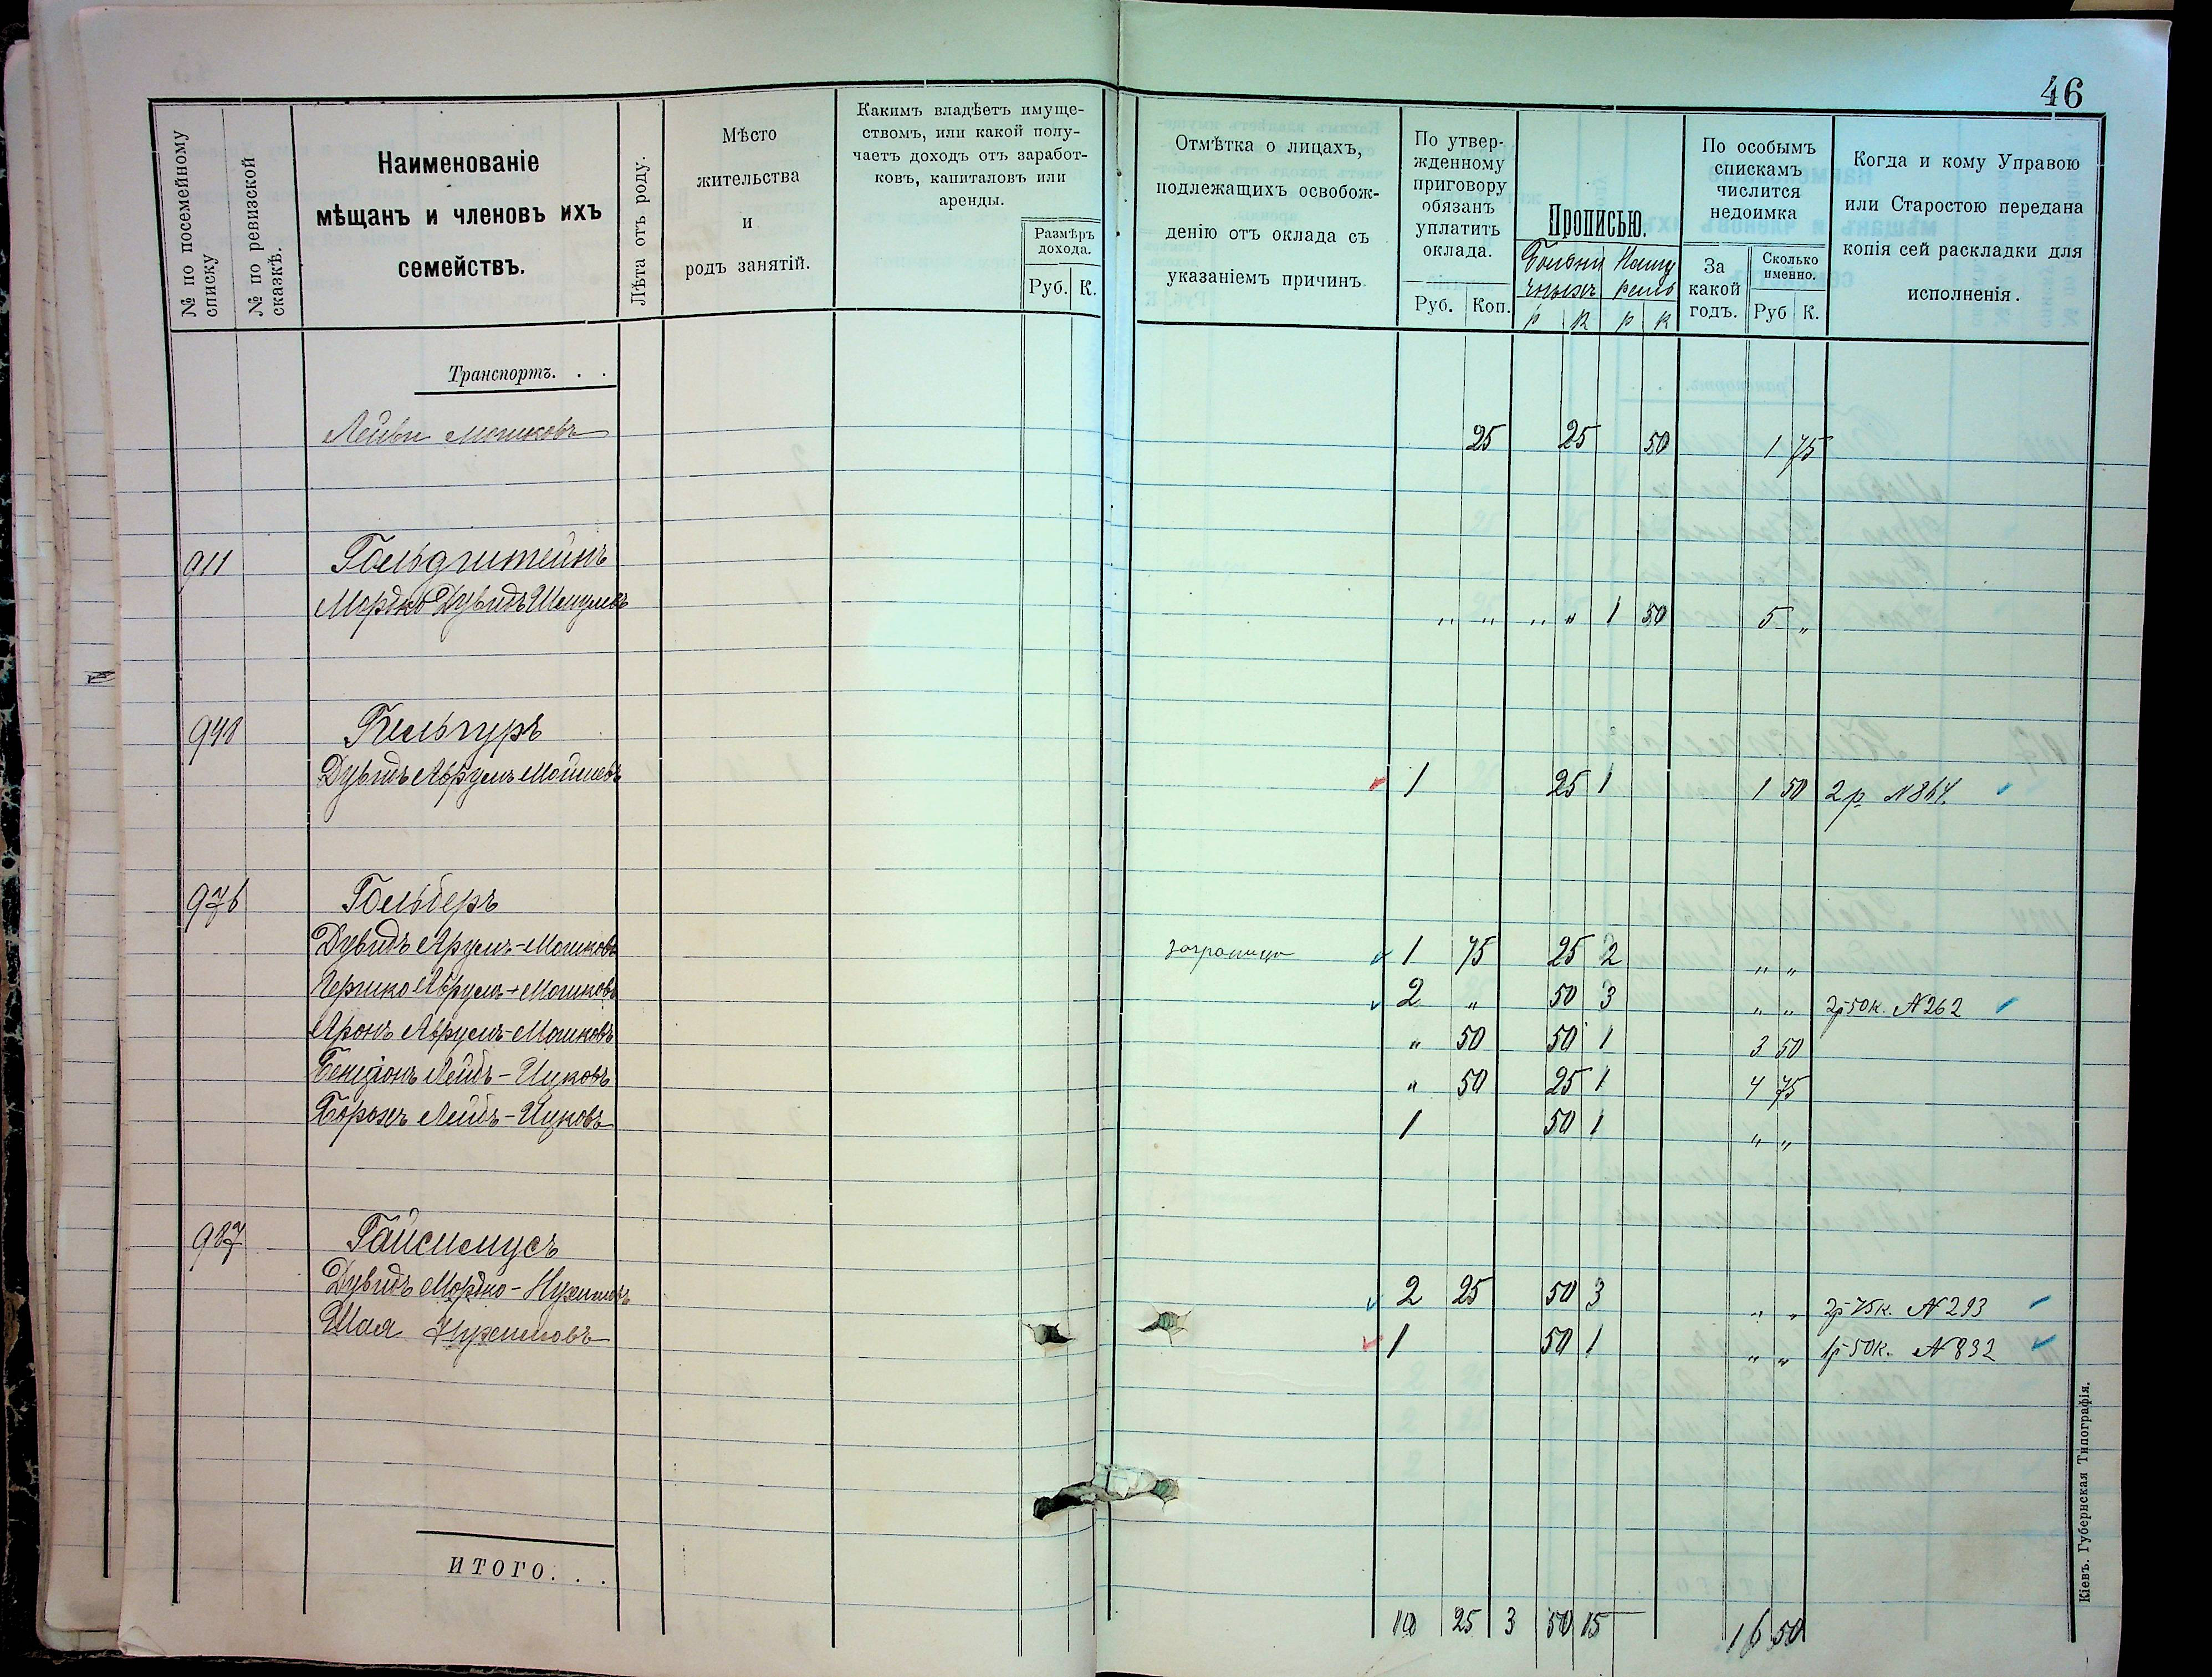 46
№ по посемейному списку
№ по ревизской сказкѣ.
Наименованіе
мѣщанъ и членовъ ихъ
семействъ.
Лѣта отъ роду.
Мѣсто
жительства
и
родъ занятій.
Какимъ владѣетъ имуще-
ствомъ, или какой полу-
чаетъ доходъ отъ заработ-
ковъ, капиталовъ или
аренды.
Размѣръ
дохода.
Руб. К.
Отмѣтка о лицахъ,
подлежащихъ освобож-
денію отъ оклада съ
указаніемъ причинъ
По утвер-
жденному
приговору
обязанъ
уплатить
оклада.
Руб. Коп.
Прописью.
р к р к
По особымъ
спискамъ
числится
недоимка
За
какой
годъ.
Сколько
именно.
Руб К.
Когда и кому Управою
или Старостою передана
копія сей раскладки для
исполненія.
Транспортъ. . .
Лейви Мошковъ 25 25 50 1 75
911 Гольдштейнъ
Мордко Дувидъ Шмулевъ " " " " 1 50 5 "
948 Бельгуръ
Дувидъ Аврумъ Мошковъ 1 25 1 1 50 2 р. N 864.
976 Гольберъ
Дувидъ Арумъ-Мошковъ заграницу 1 75 25 2 " "
Гершко Аврумъ-Мошковъ 2 " 50 3 " " 2р 50к. N 262
Аронъ Аврумъ-Мошковъ " 50 50 1 3 50
Бенціонъ Лейбъ-Ицковъ " 50 25 1 4 75
Борохъ Лейбъ-Ицковъ 1 50 1 " "
987 Гайсимусъ
Дувидъ Мордко-Нухимовъ 2 25 50 3 " " 2р 75к. N 293
Шая Нухимовъ 1 50 1 " " 1р 50к. N 832
ИТОГО. . .
10 25 3 50 15 16 50
Кіевъ. Губернская Типографія.